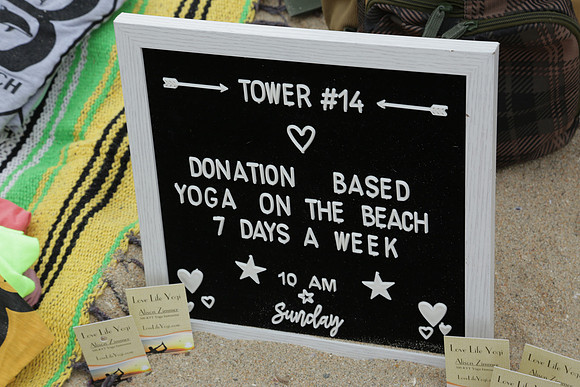 TOWER #14
DONATION BASED
YOGA ON THE BEACH
7 DAYS A WEEK
10 AM
Sunday
Love Life Yoga
Love Life Yoga
Love Life Yoga
Love Life Yoga